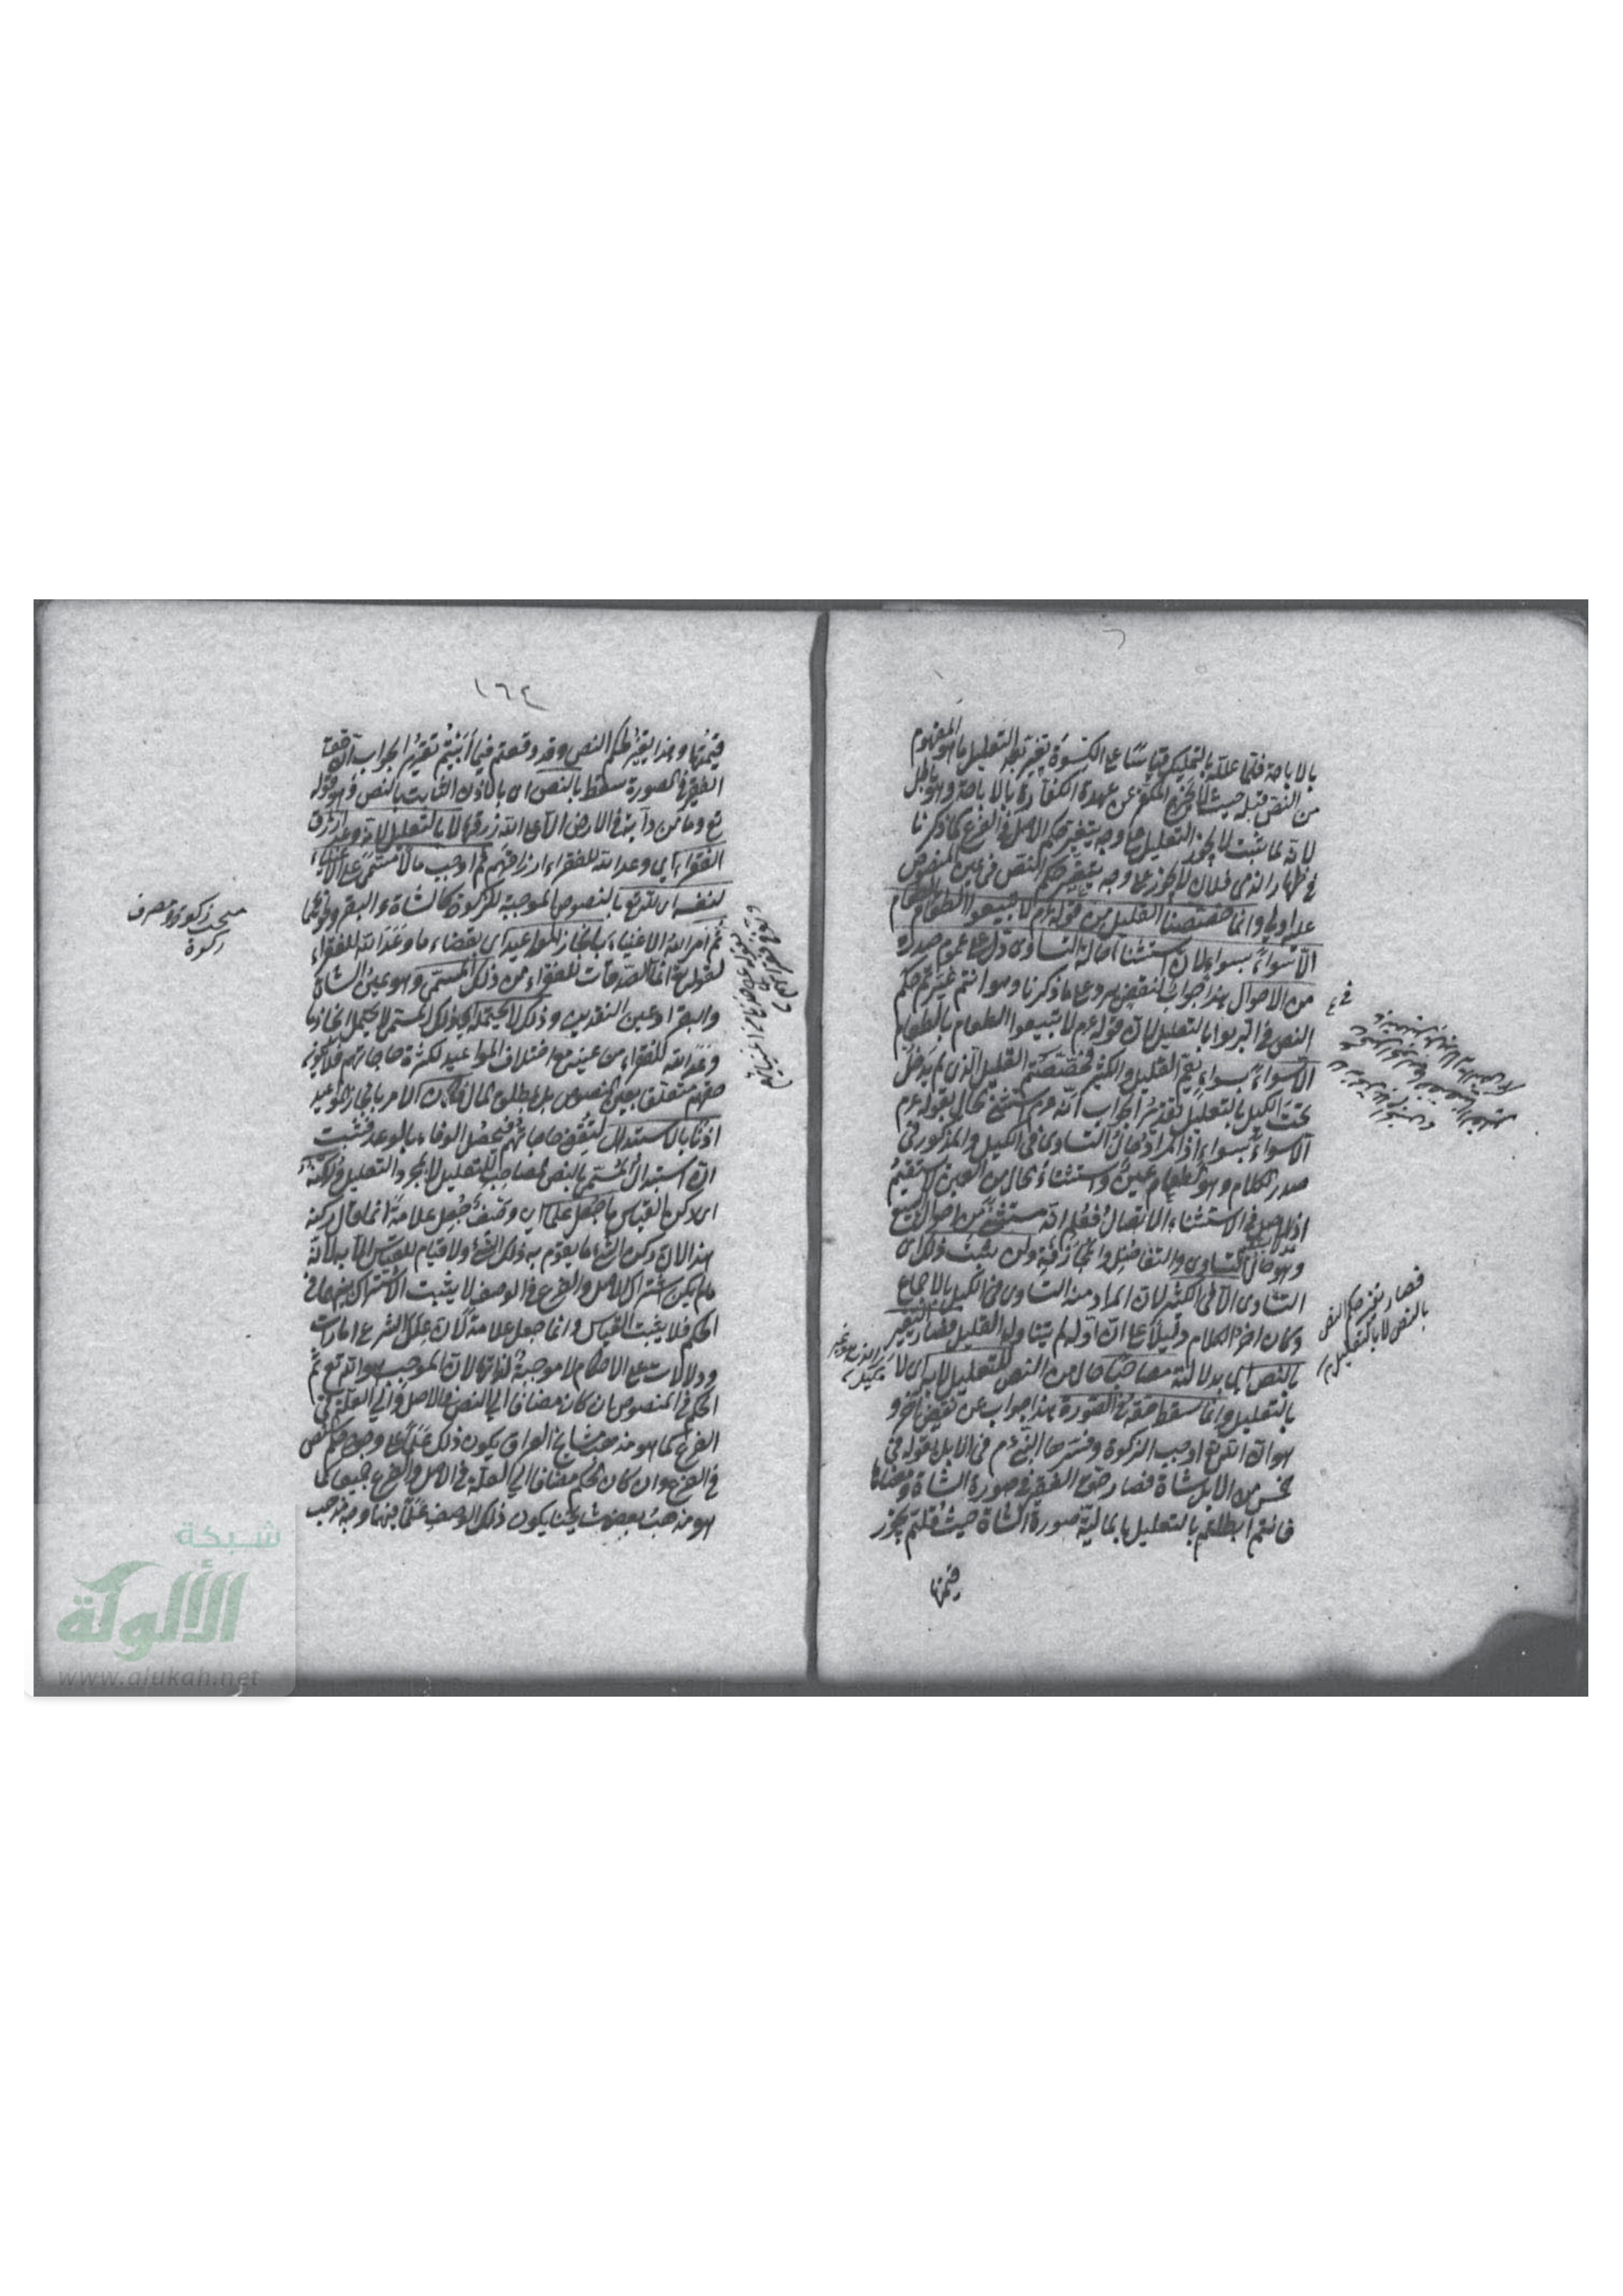 بالاباحة فلما علله بالتمليك قياسا على الكسوة تغير بعد التعليل ما هو المفهوم
من النص قبله حيث لا يخرج المكفر عن عهدة الكفارة بالاباحة وهو باطل
لانه لما ثبت لا يجوز التعليل على وجه يتغير حكم الاصل في الفرع كما ذكرنا
في ظهار الذمي فلان لا يجوز على وجه يتغير حكم النص في عين المنصوص
عليه اولى وانما خصصنا القليل من قوله عم لا تبيعوا الطعام بالطعام
الا سواء بسواء لان استثناء حالة التساوي دل على عموم صدره
من الاحوال هذا جواب لنقض يرد على ما ذكرنا وهو انتم غيرتم حكم
النص في الربوا بالتعليل لان قوله عم لا تبيعوا الطعام بالطعام
الا سواء بسواء يعم القليل والكثير فخصصتم القليل الذي لم يدخل
تحت الكيل بالتعليل تقرير الجواب انه عم استثنى الحال بقوله عم
الا سواء بسواء اذ المراد حال التساوي في الكيل والمذكور في
صدر الكلام وهو الطعام عين واستثناء الحال من العين لا يستقيم
اذ الاصل في الاستثناء الاتصال فعلم انه مستثنى من احوال البيع
وهو حال التساوي والتفاضل والمجازفة ولن يثبت ذلك اي
التساوي الا في الكثير لان المراد منه التساوي في الكيل بالاجماع
وكان اخر الكلام دليلا على ان اوله لم يتناول القليل فصار التغيير
بالنص اي بدلالته مصاحبا حال من النص للتعليل لا به اي لا
بالتعليل وانما سقط حقه في الصورة هذا جواب عن نقض اخر و
هو ان الله تع اوجب الزكوة وفسرها النبي عم في الابل بقوله في
خمس من الابل شاة فصار حق الفقير في صورة الشاة ومعناها
فانتم ابطلتم بالتعليل بالمالية صورة الشاة حيث قلتم يجوز
قيمتها
فصار تغير حكم النص
بالنص لا بالتعليل
١٦٤
قيمتها وهذا يغير حكم النص وقد وقعتم فيما ابيتم تقرير الجواب ان حق
الفقير في الصورة سقط بالنص اي بالاذن الثابت بالنص وهو قوله
تع وما من دابة في الارض الا على الله رزقها لا بالتعليل لانه وعد ارزاق
الفقراء اي وعد الله للفقراء ارزاقهم ثم اوجب مالا مسمى على الاغنياء
لنفسه اي لله تع بالنصوص الموجبة للزكوة كالشاة والبقر ونحوهما
ثم امر الله الاغنياء بانجاز المواعيد اي بقضاء ما وعد الله للفقراء
لقوله تع انما الصدقات للفقراء من ذلك المسمى وهو عين الشاة
والبقر او عين النقدين وذلك لا يحتمله اي ذلك المسمى لا يحتمل انجاز ما
وعد الله للفقراء من عينه مع اختلاف المواعيد لكثرة حاجاتهم فلا يكون
حقهم متعلقا بعين المنصوص بل بمطلق المال فكان الامر بانجاز المواعيد
اذنا بالاستبدال ليتحقق حاجاتهم فيحصل الوفاء بالوعد فثبت
ان استبدال المسمى بالنص مصاحب للتعليل لا بمجرد التعليل وركنه
اي ركن القياس ما جعل علما اي وصف جعل علامة انما قال ركنه
هذا لان ركن الشئ ما يقوم به ذلك الشئ ولا قيام للقياس الا به لانه
ما لم يكن اشتراك الاصل والفرع في الوصف لا يثبت الاشتراك بينهما في
الحكم فلا يثبت القياس وانما جعل علامة لان علل الشرع امارات
ودلالات على الاحكام لا موجبة لذواتها لان الموجب هو الله تع ثم
الحكم في المنصوص ان كان مضافا الى النص في الاصل والى العلة في
الفرع كما هو مذهب مشايخ العراق يكون ذلك علما على وجود حكم النص
في الفرع وان كان الحكم مضافا الى العلة في الاصل والفرع جميعا كما
هو مذهب بعض مشايخنا يكون ذلك الوصف علما فيهما وجه مذهب
مبحث زكوة ومصرف
زكوة
شبكة
الألوكة
www.alukah.net